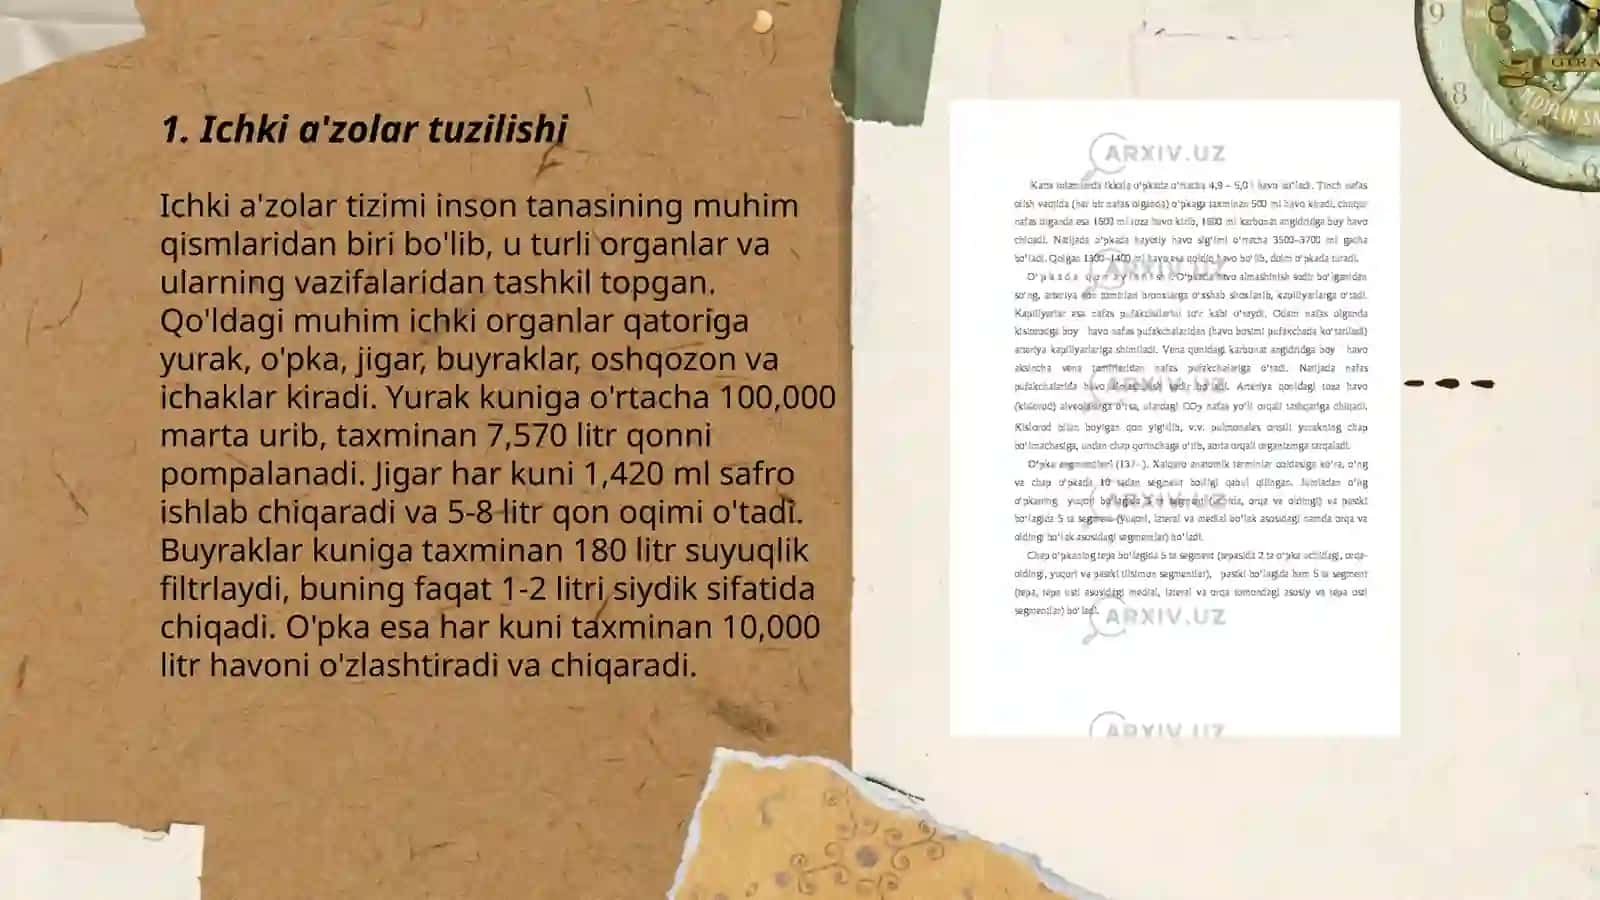 1. Ichki a'zolar tuzilishi
Ichki a'zolar tizimi inson tanasining muhim
qismlaridan biri bo'lib, u turli organlar va
ularning vazifalaridan tashkil topgan.
Qo'ldagi muhim ichki organlar qatoriga
yurak, o'pka, jigar, buyraklar, oshqozon va
ichaklar kiradi. Yurak kuniga o'rtacha 100,000
marta urib, taxminan 7,570 litr qonni
pompalanadi. Jigar har kuni 1,420 ml safro
ishlab chiqaradi va 5-8 litr qon oqimi o'tadi.
Buyraklar kuniga taxminan 180 litr suyuqlik
filtrlaydi, buning faqat 1-2 litri siydik sifatida
chiqadi. O'pka esa har kuni taxminan 10,000
litr havoni o'zlashtiradi va chiqaradi.
ARXIV.UZ
ikkala o'pkada o'rtacha 4,9 – 5,0 l havo bo'ladi. Tinch nafas
olish vaqtida (har bir nafas olganda) o'pkaga taxminan 500 ml havo kiradi, chuqur
nafas olganda esa 1600 ml toza havo kirib, 1600 ml karbonat angidridga boy havo
chiqadi. Natijada o'pkada hayotiy havo sig'imi o'rtacha 3500–3700 ml gacha
bo'ladi. Qolgan 1300–1400 ml havo esa qoldiq havo bo'lib, doim o'pkada turadi.
ARXIV.UZ
O'pkada havo almashinish sodir bo'lganidan
so'ng, arteriya qon tomirlari bronxlarga o'xshab shoxlanib, kapillyarlarga o'tadi.
Kapillyarlar esa nafas pufakchalarini to'r kabi o'raydi. Odam nafas olganda
kislorodga boy havo nafas pufakchalaridan (havo bosimi pufakchada ko'tariladi)
arteriya kapillyarlariga shimiladi. Vena qonidagi karbonat angidridga boy havo
aksincha vena tomirlaridan nafas pufakchalariga o'tadi. Natijada nafas
pufakchalarida havo almashinish sodir bo'ladi. Arteriya qonidagi toza havo
ARXIV.UZ
(kislorod) alveolalarga o'tsa, ulardagi CO₂ nafas yo'li orqali tashqariga chiqadi.
Kislorod bilan boyigan qon yig'ilib, v.v. pulmonales orqali yurakning chap
bo'lmachasiga, undan chap qorinchaga o'tib, aorta orqali organizmga tarqaladi.
O'pka segmentlari Xalqaro anatomik terminlar qoidasiga ko'ra, o'ng
va chap o'pkada 10 tadan segment borligi qabul qilingan. Jumladan o'ng
ARXIV.UZ
o'pkaning yuqori bo'lagida 3 ta segment orqa va oldingi) va pastki
bo'lagida 5 ta segment (yuqori, lateral va medial bo'lak asosidagi hamda orqa va
oldingi bo'lak asosidagi segmentlar) bo'ladi.
Chap o'pkaning tepa bo'lagida 5 ta segment (tepasida 2 ta o'pka uchidagi, orqa-
oldingi, yuqori va pastki tilsimon segmentlar), pastki bo'lagida ham 5 ta segment
(tepa, tepa osti asosidagi medial, lateral va orqa tomondagi asosiy va tepa osti
segmentlar) bo'ladi.
ARXIV.UZ
ARXIV.UZ